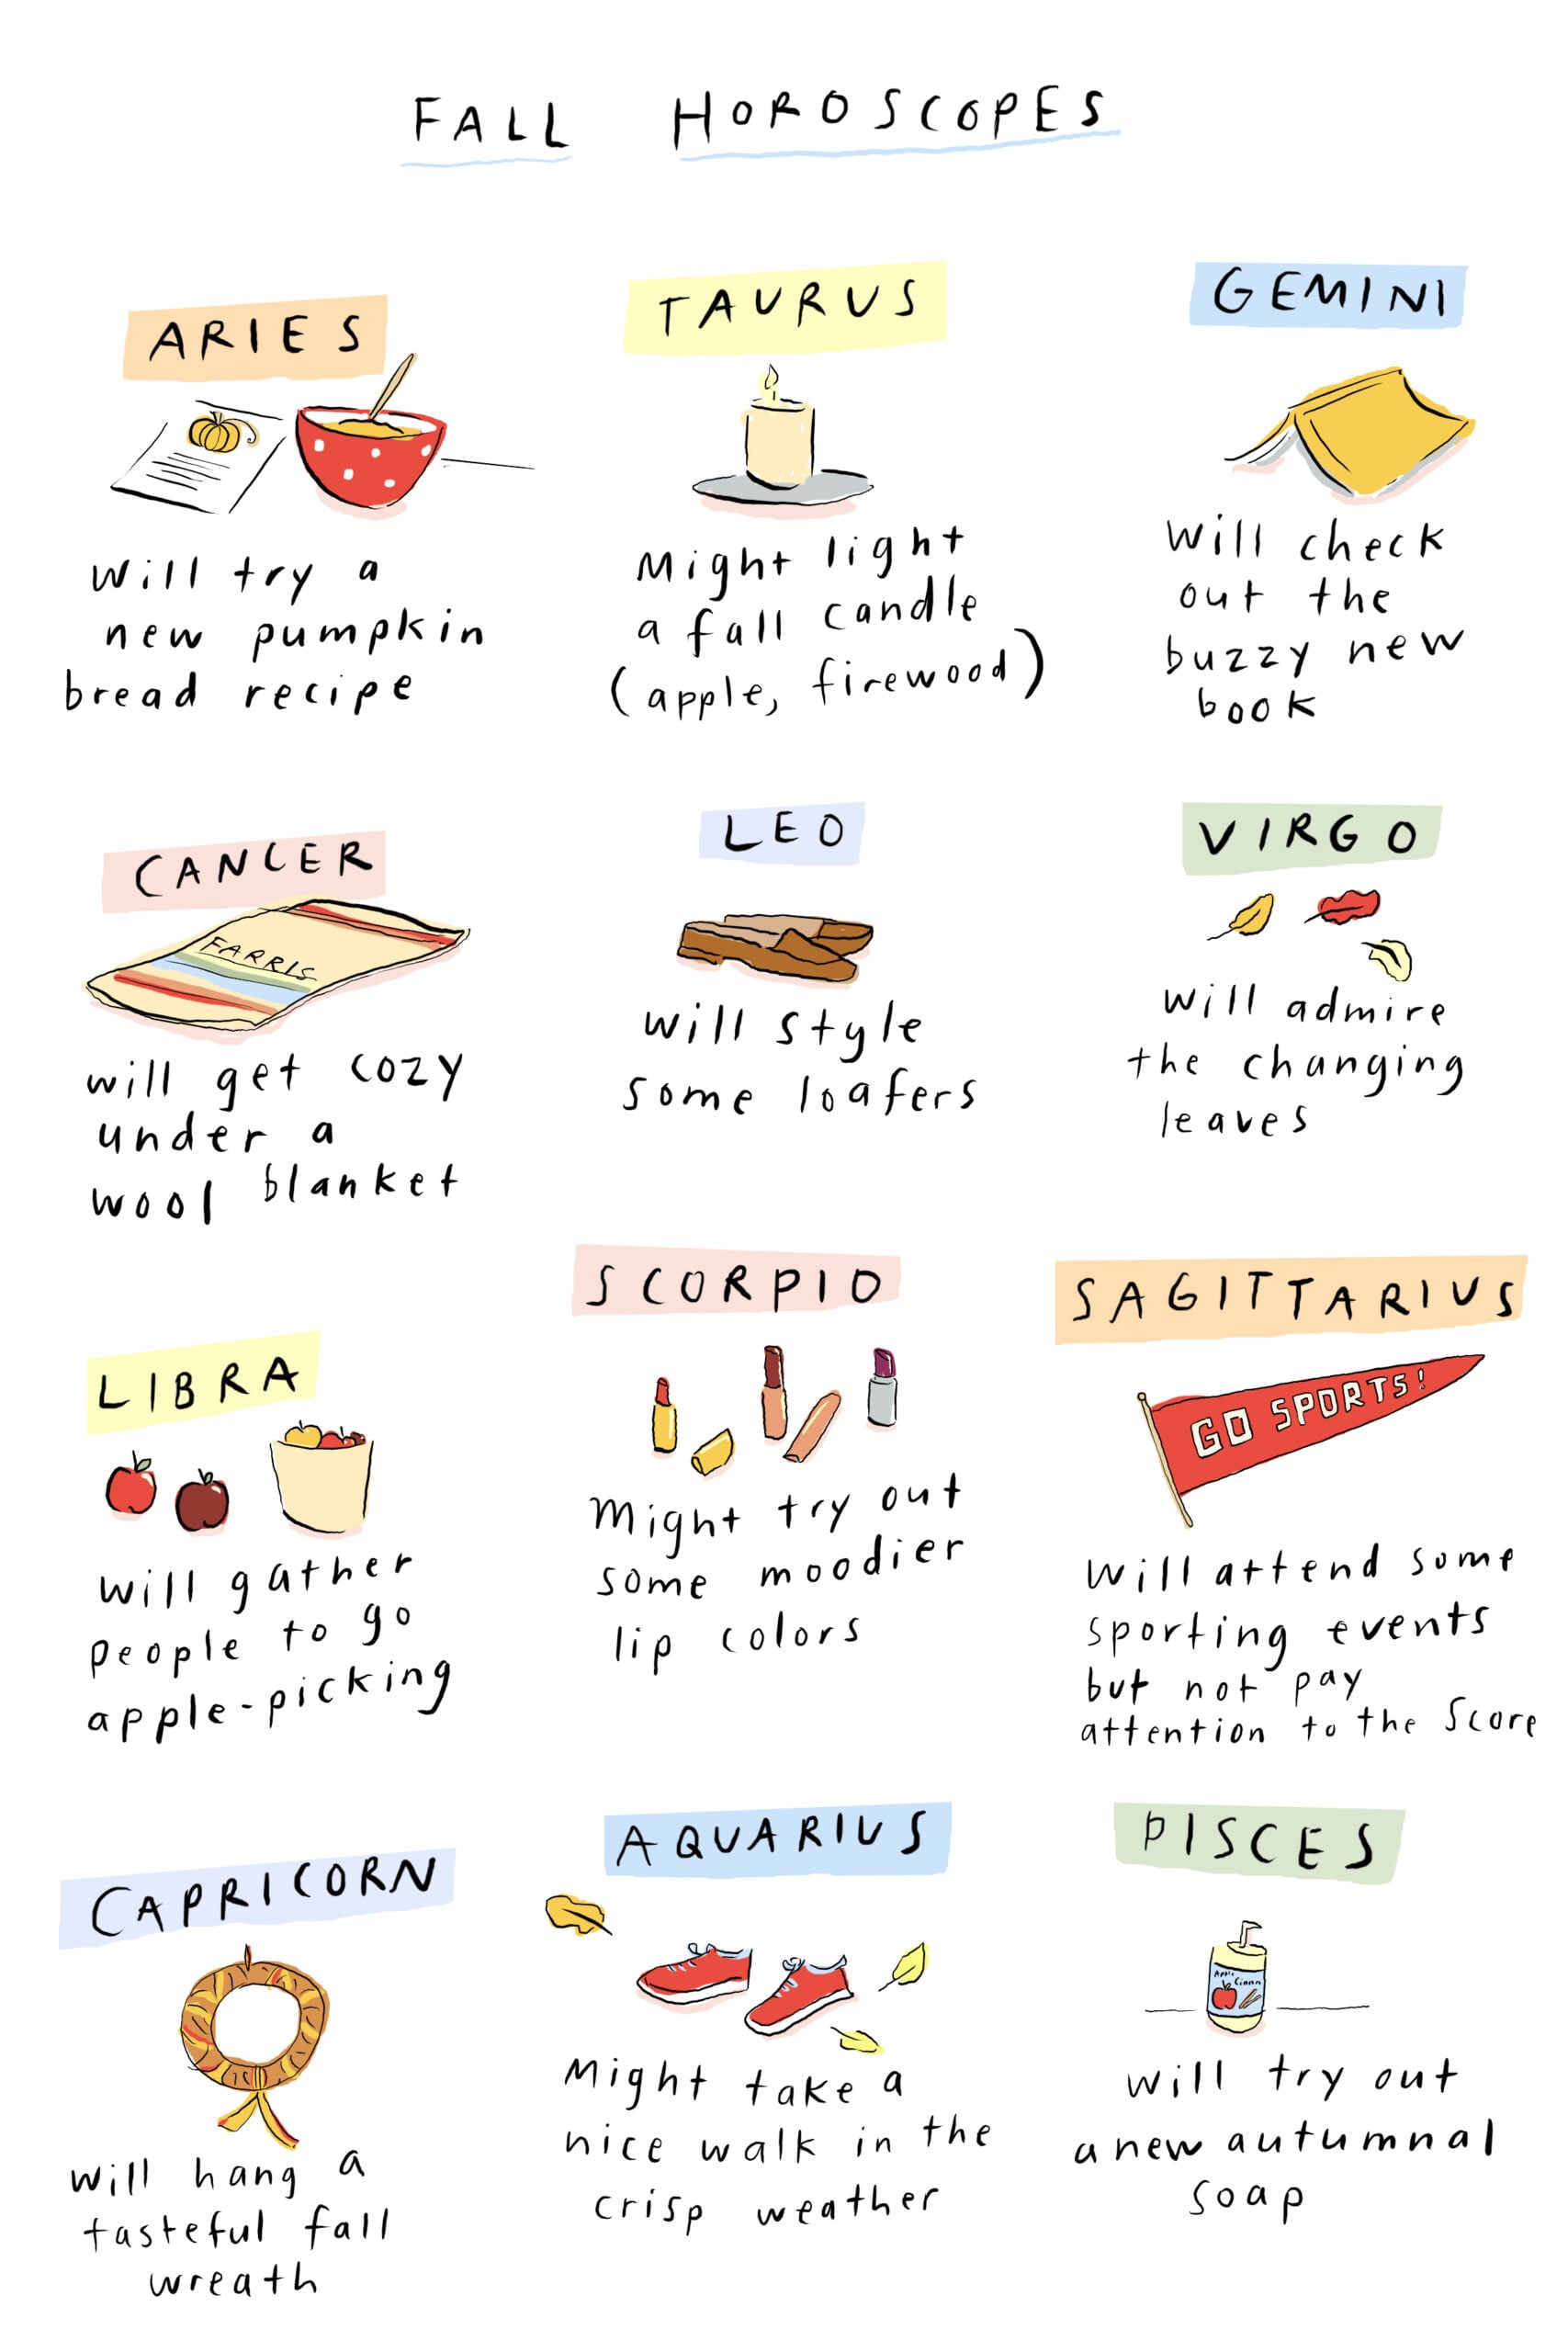 FALL HOROSCOPES
ARIES
Will try a
new pumpkin
bread recipe
TAURUS
Might light
a fall candle
(apple, firewood)
GEMINI
Will check
out the
buzzy new
book
CANCER
FARRIS
will get cozy
under a
wool blanket
LEO
will style
some loafers
VIRGO
will admire
the changing
leaves
LIBRA
will gather
people to go
apple-picking
SCORPIO
Might try out
some moodier
lip colors
SAGITTARIUS
GO SPORTS!
Will attend some
sporting events
but not pay
attention to the score
CAPRICORN
will hang a
tasteful fall
wreath
AQUARIUS
Might take a
nice walk in the
crisp weather
PISCES
Apple
Cinnn
will try out
a new autumnal
soap